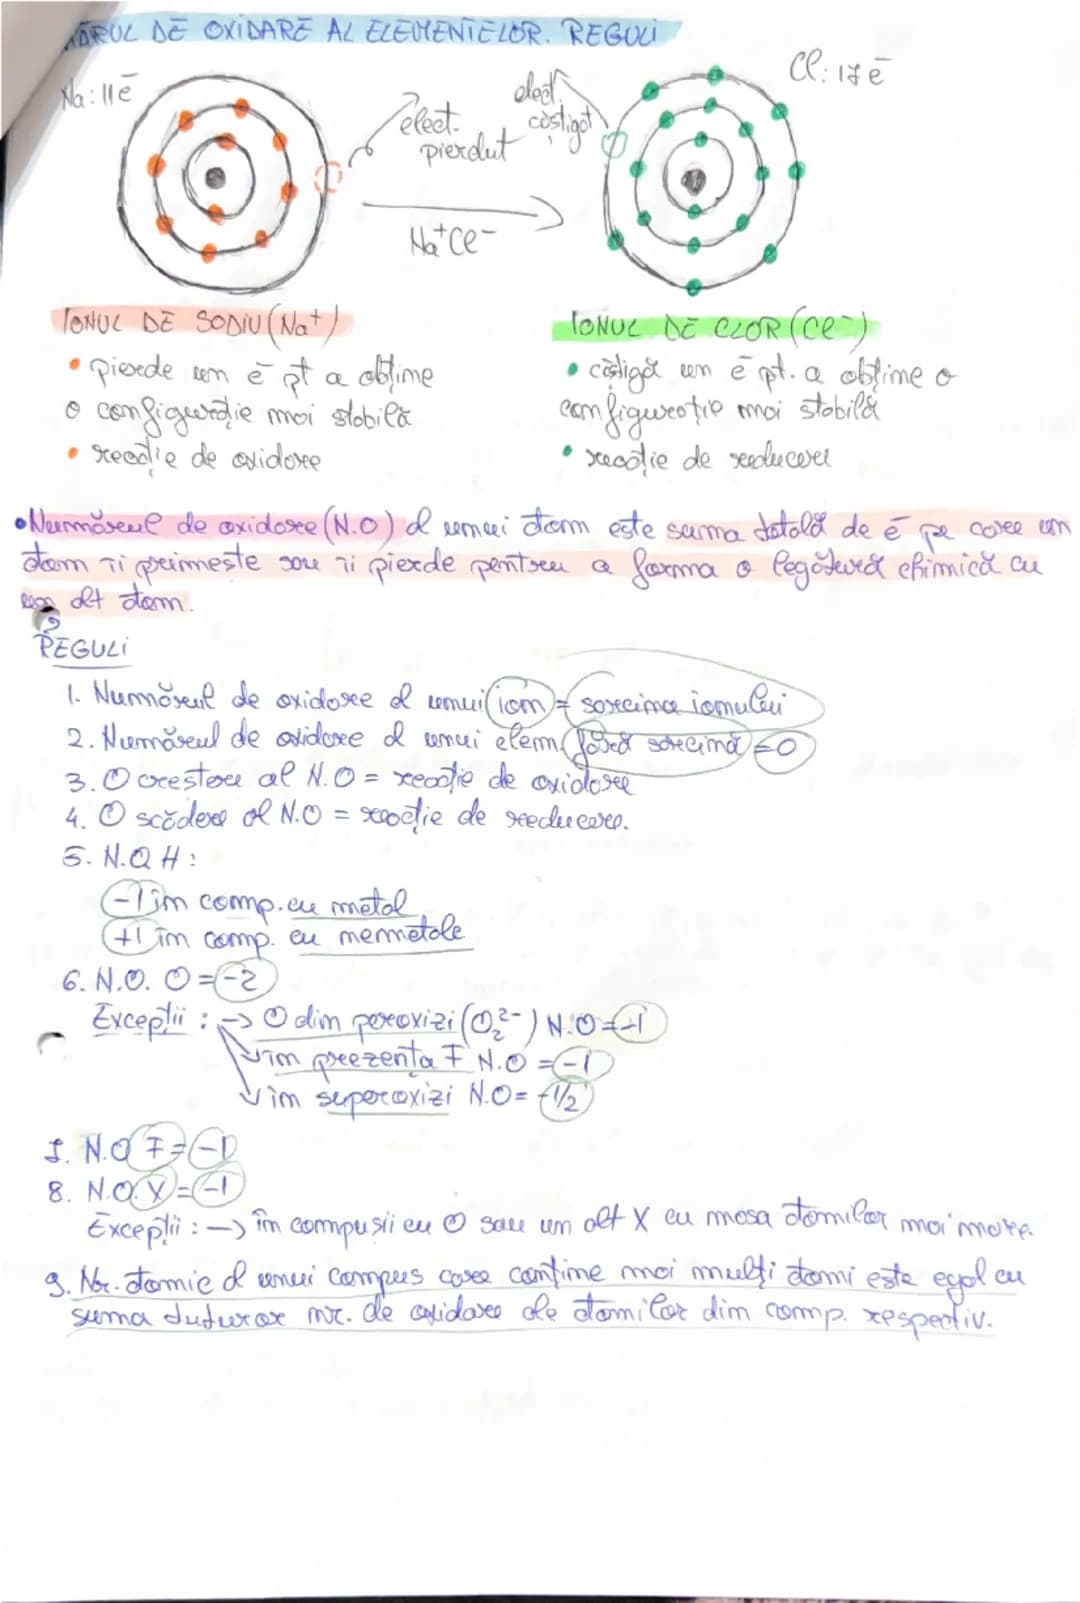 MĂRUL DE OXIDARE AL ELEMENTELOR. REGULI
Na: 11ē
elect. pierdut
elect. câștigat
Cl: 17ē
Na⁺Cl⁻
IONUL DE SODIU (Na⁺)
• pierde un ē pt a obține
o configurație mai stabilă
• reacție de oxidare
IONUL DE CLOR (Cl⁻)
• câștigă un ē pt. a obține o
configurație mai stabilă
• reacție de reducere
• Numărul de oxidare (N.O) al unui atom este suma totală de ē pe care un
atom îi primește sau îi pierde pentru a forma o legătură chimică cu
un alt atom.
REGULI
1. Numărul de oxidare al unui ion = sarcina ionului
2. Numărul de oxidare al unui elem. fără sarcină = 0
3. O creștere al N.O = reacție de oxidare
4. O scădere al N.O = reacție de reducere.
5. N.O H:
-1 în comp. cu metal
+1 în comp. cu nemetale
6. N.O. O = -2
Excepții: → O din peroxizi (O₂²⁻) N.O = -1
în prezența F N.O = -1
în superoxizi N.O = -1/2
7. N.O F = -1
8. N.O. X = -1
Excepții: → în compușii cu O sau un alt X cu masa atomilor mai mare.
9. Nr. atomic al unui compus care conține mai mulți atomi este egal cu
suma tuturor nr. de oxidare ale atomilor din comp. respectiv.